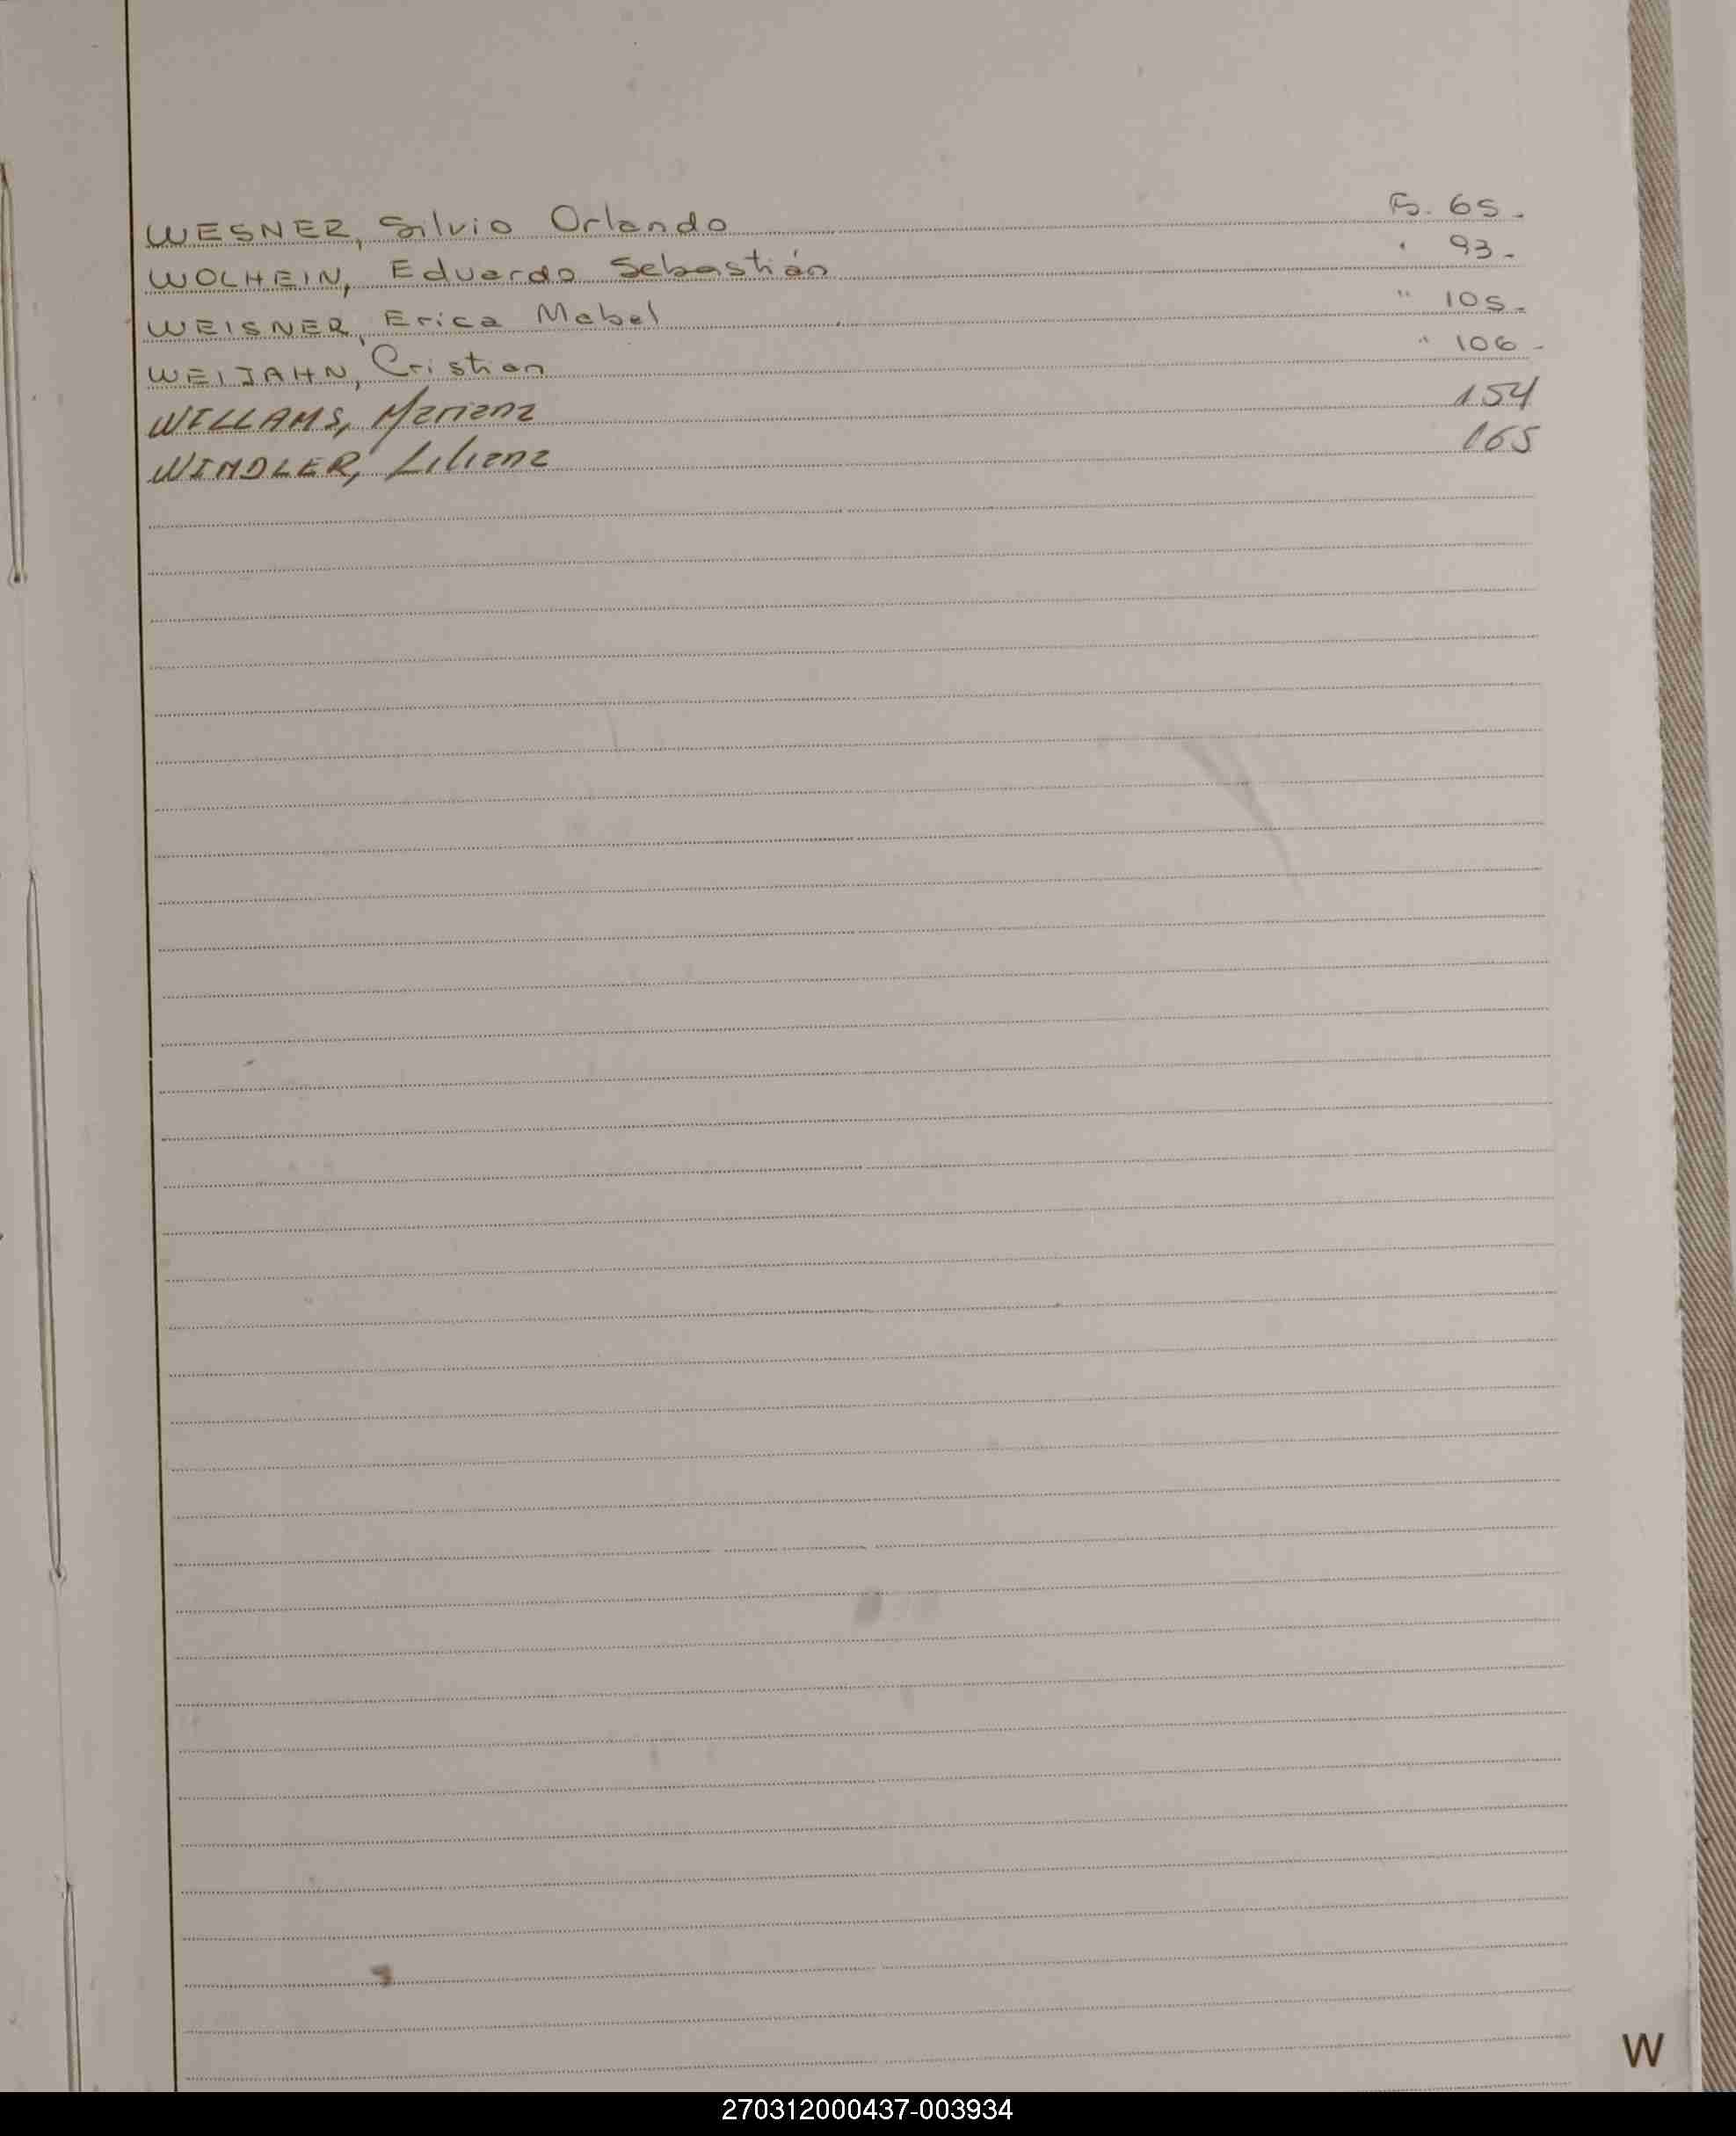 WESNER, Silvio Orlando Fs. 65.-
WOLHEIN, Eduardo Sebastián " 93.-
WEISNER, Erica Mabel " 105.-
WEIJAHN, Cristian " 106.-
WILLAMS, Mariana 154
WINDLER, Liliana 165
W
270312000437-003934